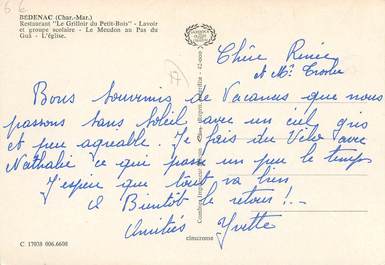 BEDENAC (Char.-Mar.)
Restaurant "Le Grilloir du Petit-Bois" - Lavoir
et groupe scolaire - Le Meudon au Pas du
Guâ - L'église.
Chère Renée
et Mr
Bons Souvenirs de Vacances que nous
passons sans soleil avec un ciel gris
et peu agréable. Je fais du Vélo avec
Nathalie ce qui passe un peu le temps
J'espère que tout va bien
à Bientôt le retour !
Amitiés Yvette
C 17038 006.6608
cimcrome